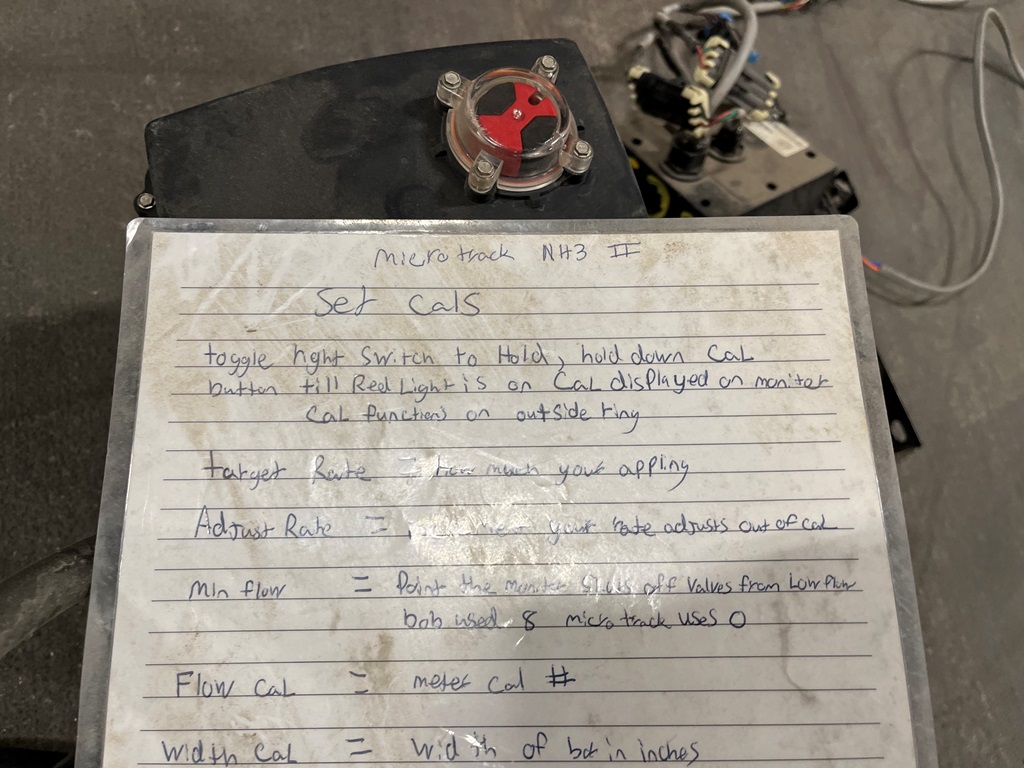 microtrack NH3 II
Set Cals
toggle right Switch to Hold, hold down Cal
button till Red Light is on Cal displayed on monitor
Cal functions on outside ring
target Rate = how much your appling
Adjust Rate = your rate adjusts out of cal
Min flow = Point the monitor off Valves from Low flow
bob used 8 microtrack uses 0
Flow Cal = meter cal #
Width Cal = Width of bar in inches